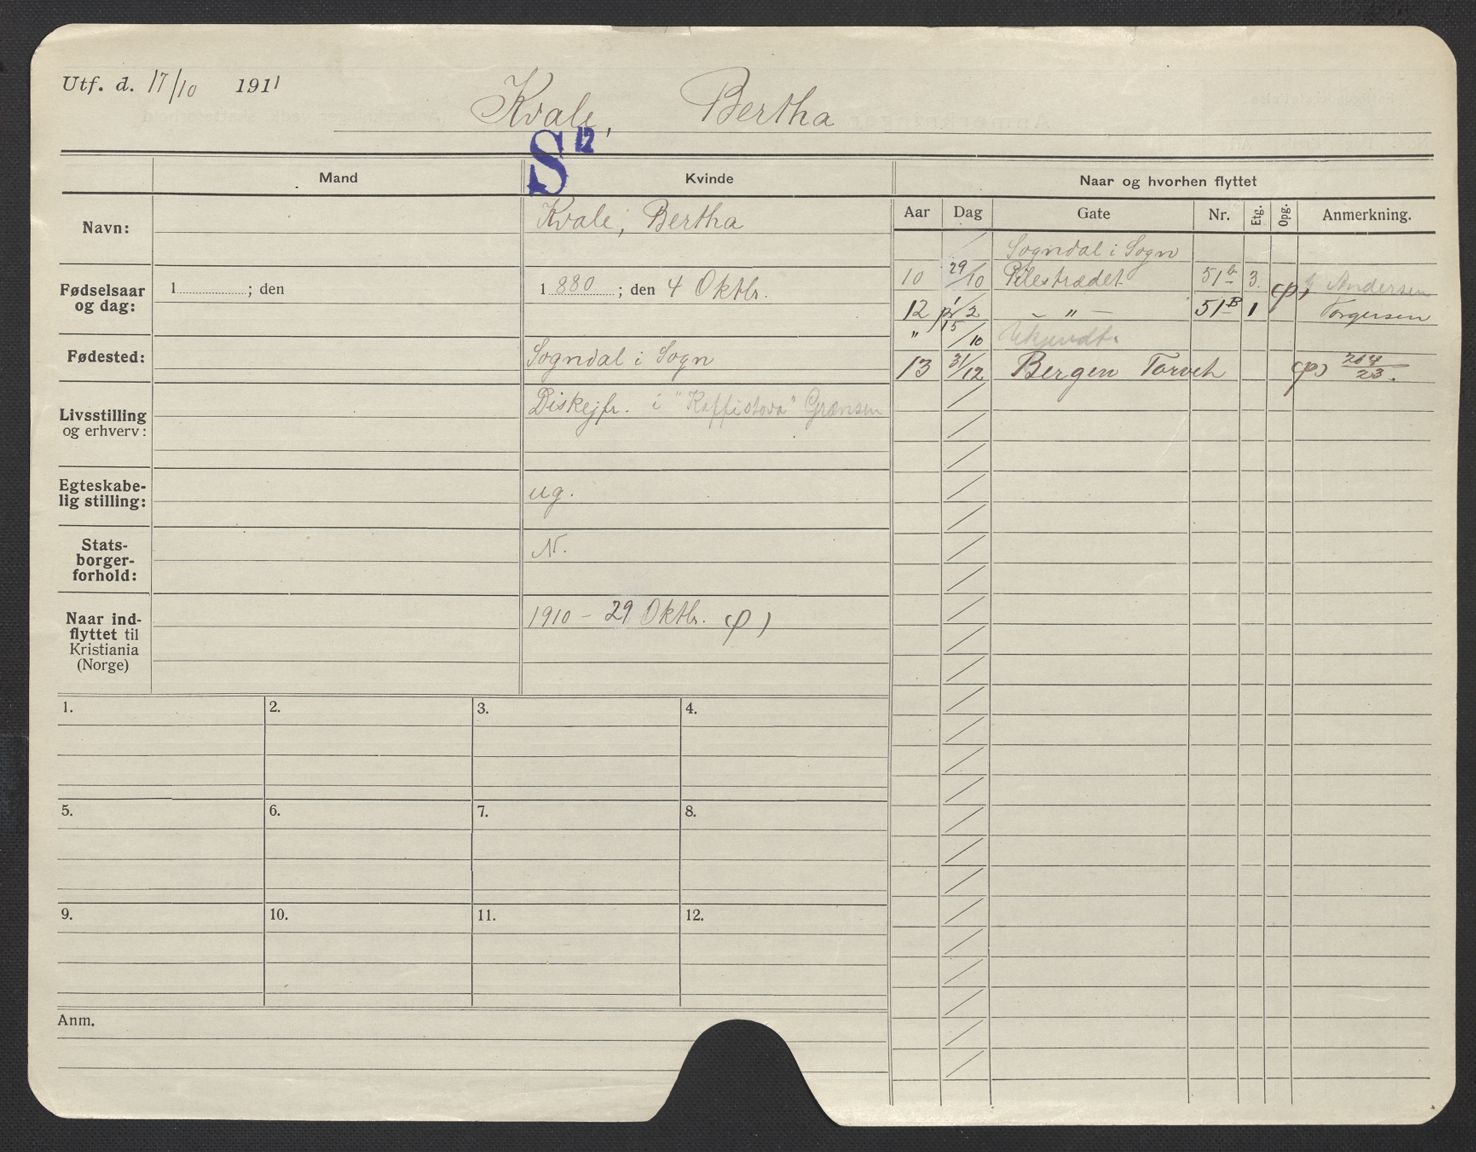 Utf. d. 17/10 1911
Kvale, Bertha
S 12
Mand
Kvinde
Naar og hvorhen flyttet
Aar Dag Gate Nr. Etg. Opg. Anmerkning.
Navn:
Kvale, Bertha
Fødselsaar og dag:
1 ; den
1 880 ; den 4 Oktbr.
Fødested:
Sogndal i Sogn
Livsstilling og erhverv:
Diskejfr. i "Kaffistova" Grænsen
Egteskabe-
lig stilling:
ug.
Stats-
borger-
forhold:
N.
Naar ind-
flyttet til
Kristiania
(Norge)
1910 – 29 Oktbr. (p)
Sogndal i Sogn
10 29/10 Pilestrædet 51 b 3. Andersen
12 1/2 – " – 51 B 1 (p) Torgersen
" 15/10 Ukjendt.
13 31/12 Bergen Torvet (p) 204/23.
1.
2.
3.
4.
5.
6.
7.
8.
9.
10.
11.
12.
Anm.